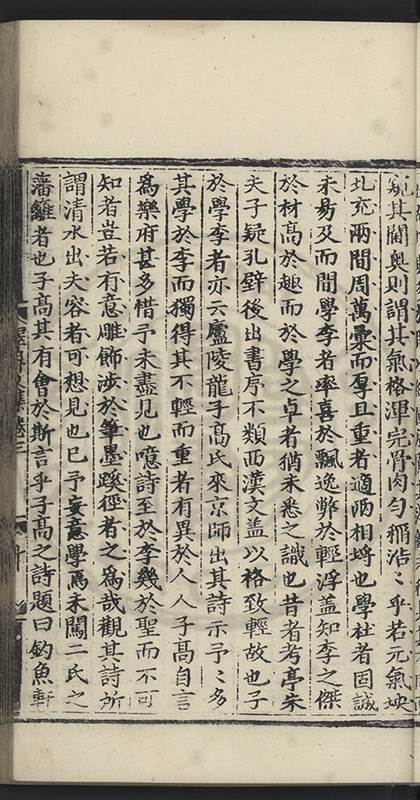 窺其閫奧則謂其氣格渾完骨肉勻稱浩〻乎若元氣块
圠充兩間周萬彙而厚且重者適陋相埒也學杜者固誠
未易及而間學李者率喜於飄逸弊於輕浮蓋知李之傑
於材高於趣而於學之卓者猶未悉之識也昔者考亭朱
夫子疑孔壁後出書序不類西漢文蓋以格致輕故也子
於學李者亦云廬陵龍子高氏來京師出其詩示予〻多
其學於李而獨得其不輕而重者有異於人人子高自言
爲樂府甚多惜予未盡見也噫詩至於李幾於聖而不可
知者豈若有意雕飾涉於筆墨蹊徑者之爲哉觀其詩所
謂清水出夫容者可想見也巳予妄意學焉未闖二氏之
藩籬者也子高其有會於斯言乎子高之詩題曰釣魚軒